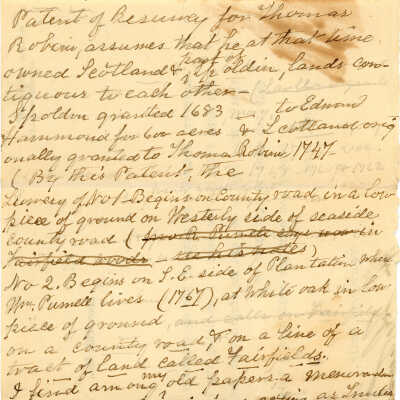 Patent of Resurvey for Thomas
Robins, assumes that he at that time
owned Scotland & part of Spoldin, lands con-
tiguous to each other—
Spoldon granted 1683 — to Edward
Hammond for 600 acres & Scotland orig
onally granted to Thomas Robins 1747
( By this Patent, the
Survey of No 1 Begins on County road in a low
piece of ground on Westerly side of seaside
county road (
Fairfield woods — )
No 2. Begins on S. E. side of Plantation where
Wm. Purnell lives (1767), at White oak in low
piece of ground,
on a county road, & on a line of a
tract of land called Fairfields.
I find among my old papers a memorandum